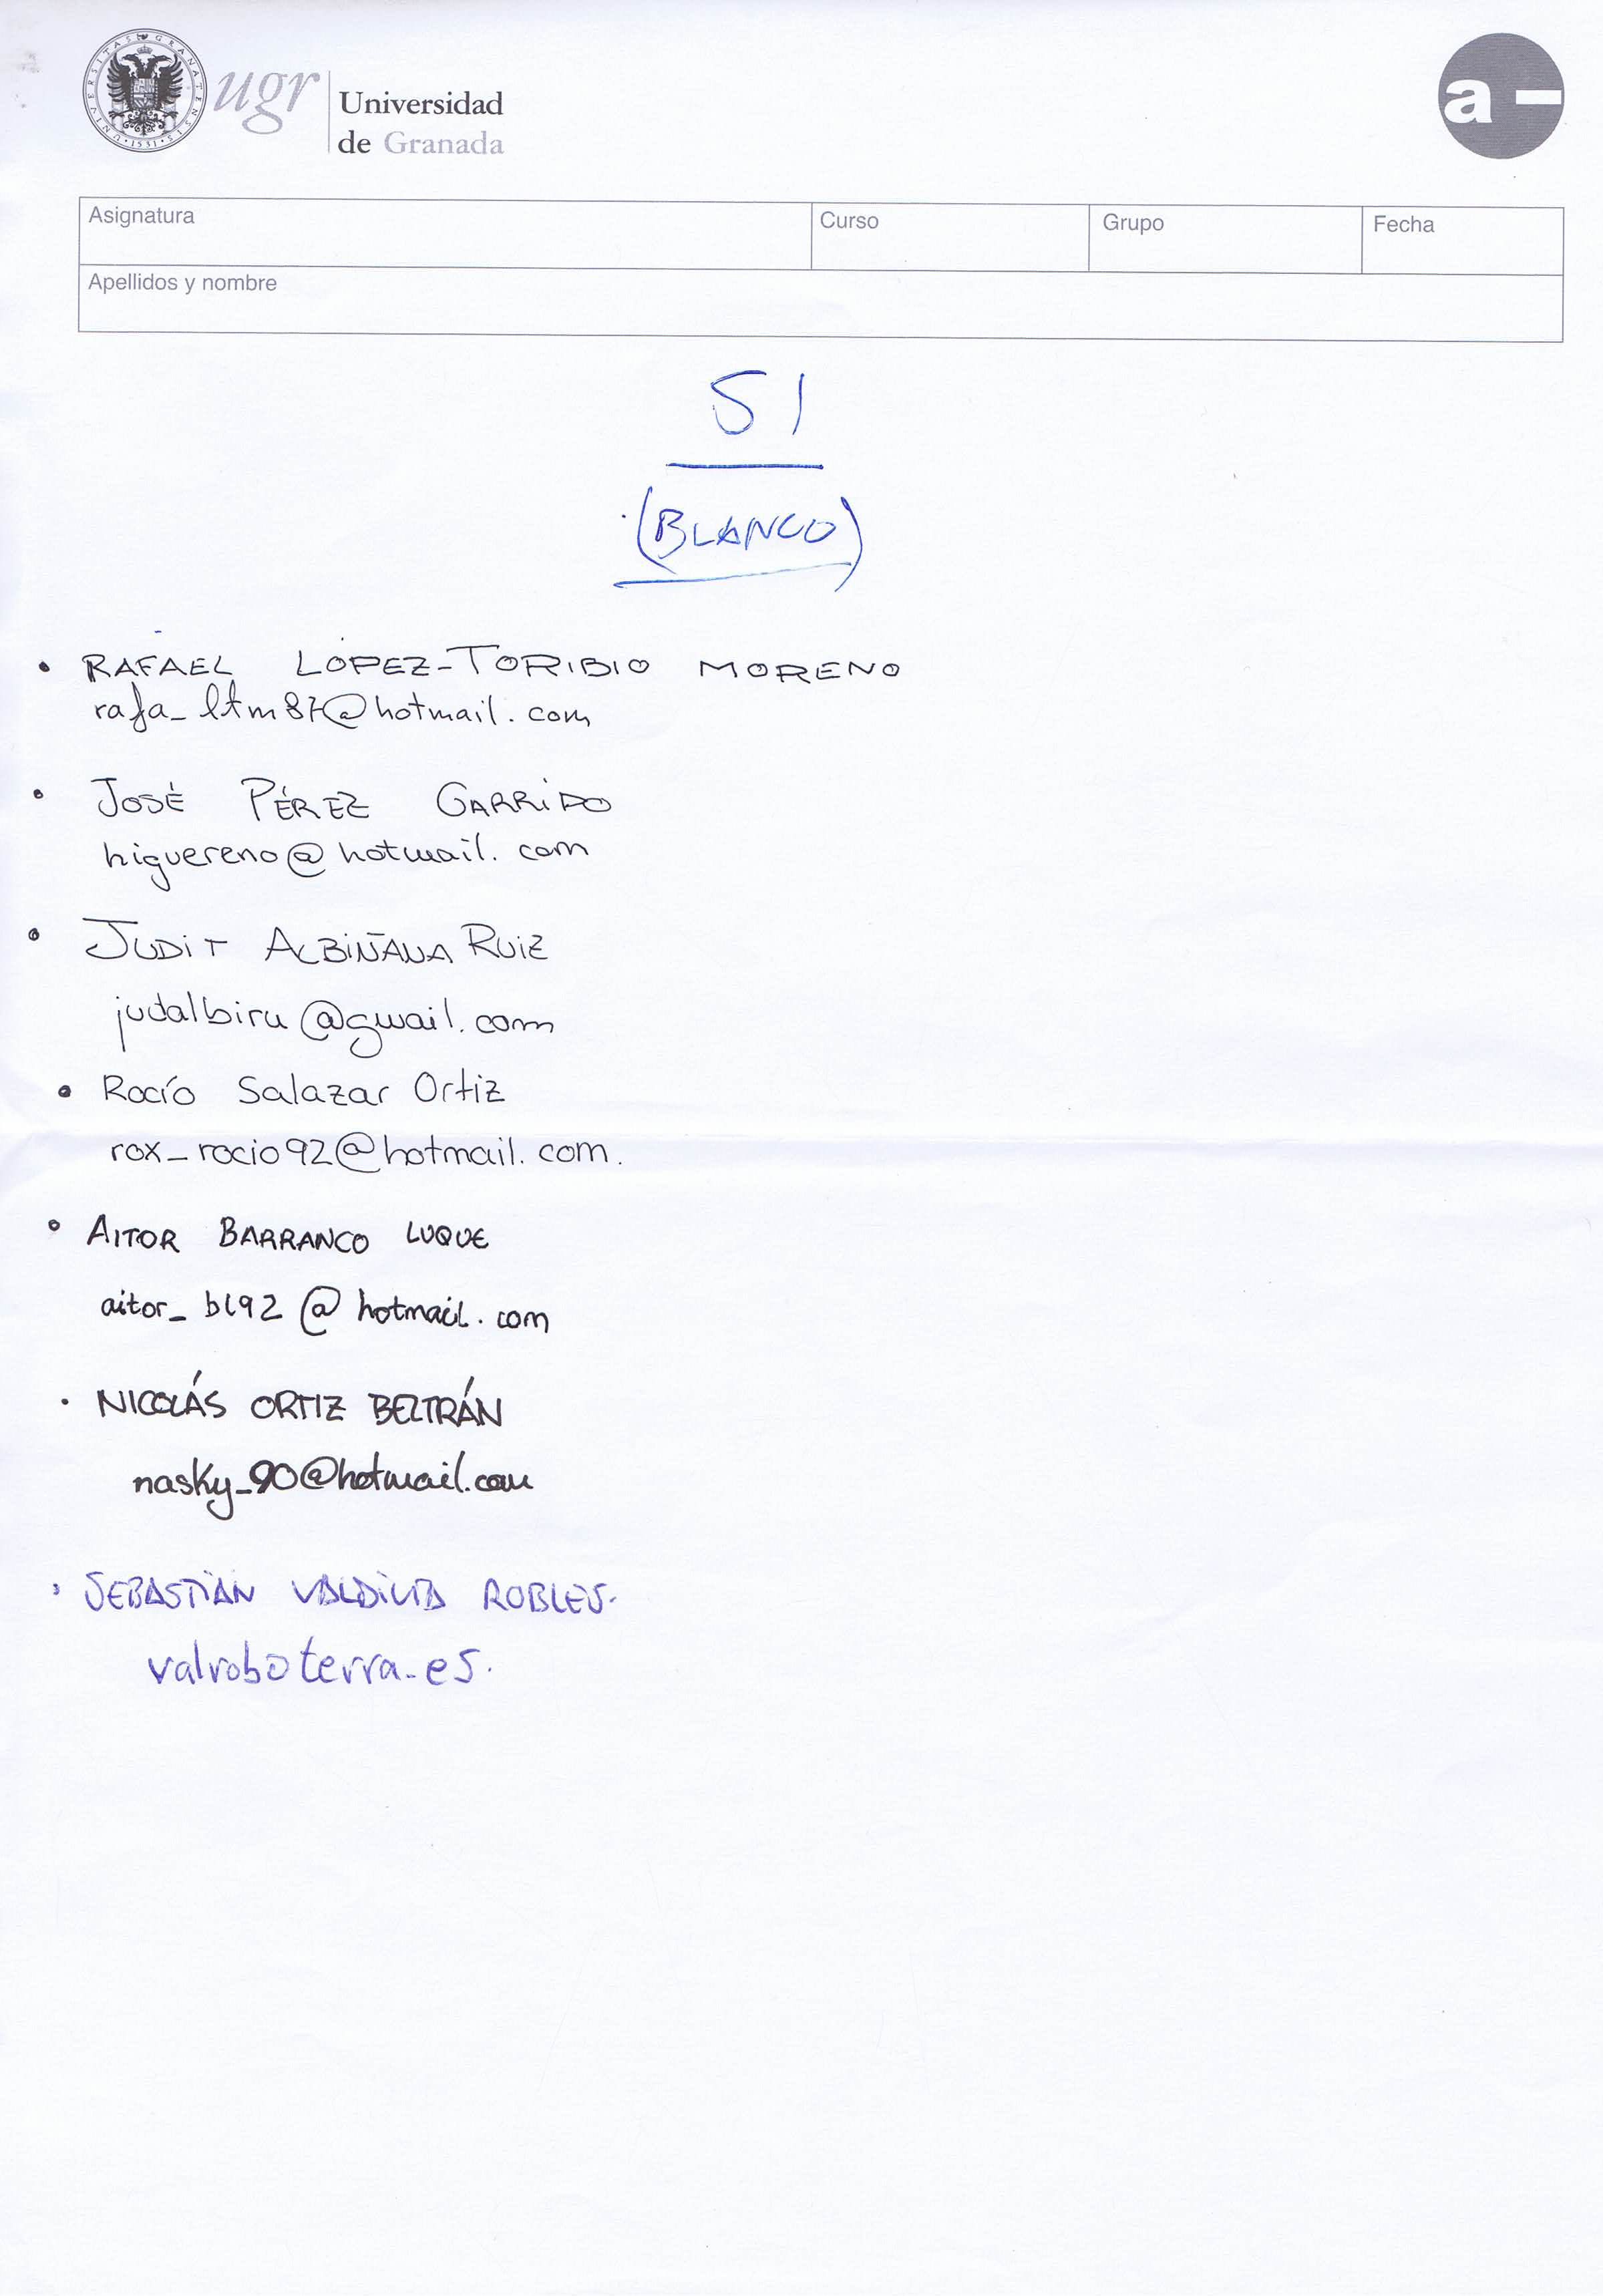 UNIVERSITAS GRANATENSIS 1531
ugr
Universidad
de Granada
a -
Asignatura
Curso
Grupo
Fecha
Apellidos y nombre
SI
(BLANCO)
• RAFAEL LÓPEZ-TORIBIO MORENO
rafa_ltm87@hotmail.com
• JOSÉ PÉREZ GARRIDO
higuereno@hotmail.com
• JUDIT ALBIÑANA RUIZ
judalbiru@gmail.com
• Rocío Salazar Ortiz
rox_rocio92@hotmail.com.
• AITOR BARRANCO LUQUE
aitor_bl92@hotmail.com
• NICOLÁS ORTIZ BELTRÁN
nasky_90@hotmail.com
• SEBASTIÁN VALDIVIA ROBLES.
valroboterra-es.